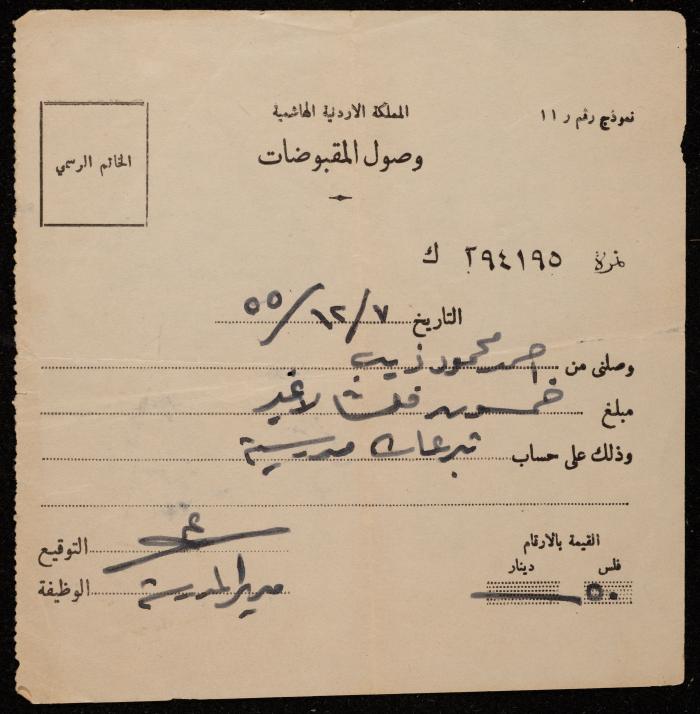 المملكة الاردنية الهاشمية
نموذج رقم ر ١١
وصول المقبوضات
الخاتم الرسمي
نمرة ٢٩٤١٩٥ ك
التاريخ ٧/١٢/٥٥
وصلنى من احمد محمود ذيب
مبلغ خمسون فلسا لا غير
وذلك على حساب تبرعات مدرسية
القيمة بالارقام
فلس دينار
٥٠ —
التوقيع
الوظيفة مدير المدرسة